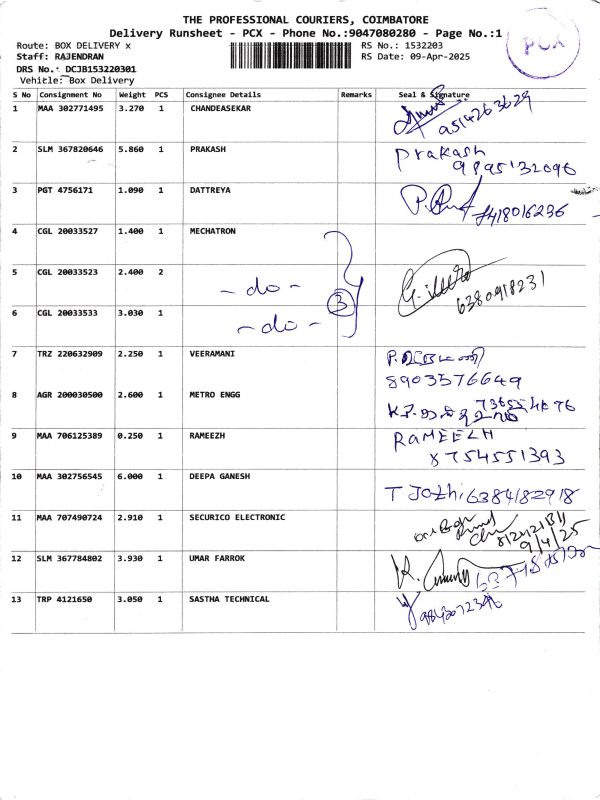 THE PROFESSIONAL COURIERS, COIMBATORE
Delivery Runsheet - PCX - Phone No.:9047080280 - Page No.:1
Route: BOX DELIVERY x RS No.: 1532203
Staff: RAJENDRAN RS Date: 09-Apr-2025
DRS No.: DCJB153220301
Vehicle: Box Delivery
PCX
S No Consignment No Weight PCS Consignee Details Remarks Seal & Signature
1 MAA 302771495 3.270 1 CHANDEASEKAR
9514263629
2 SLM 367820646 5.860 1 PRAKASH Prakash
9895132096
3 PGT 4756171 1.090 1 DATTREYA
7418016236
4 CGL 20033527 1.400 1 MECHATRON
5 CGL 20033523 2.400 2 - do - 3
6380918231
6 CGL 20033533 3.030 1 - do -
7 TRZ 220632909 2.250 1 VEERAMANI
8903576649
8 AGR 200030500 2.600 1 METRO ENGG
9 MAA 706125389 0.250 1 RAMEEZH RAMEEZH
8754551393
10 MAA 302756545 6.000 1 DEEPA GANESH T Jothi 6384182918
11 MAA 707490724 2.910 1 SECURICO ELECTRONIC
9/4/25
12 SLM 367784802 3.930 1 UMAR FARROK
13 TRP 4121650 3.050 1 SASTHA TECHNICAL